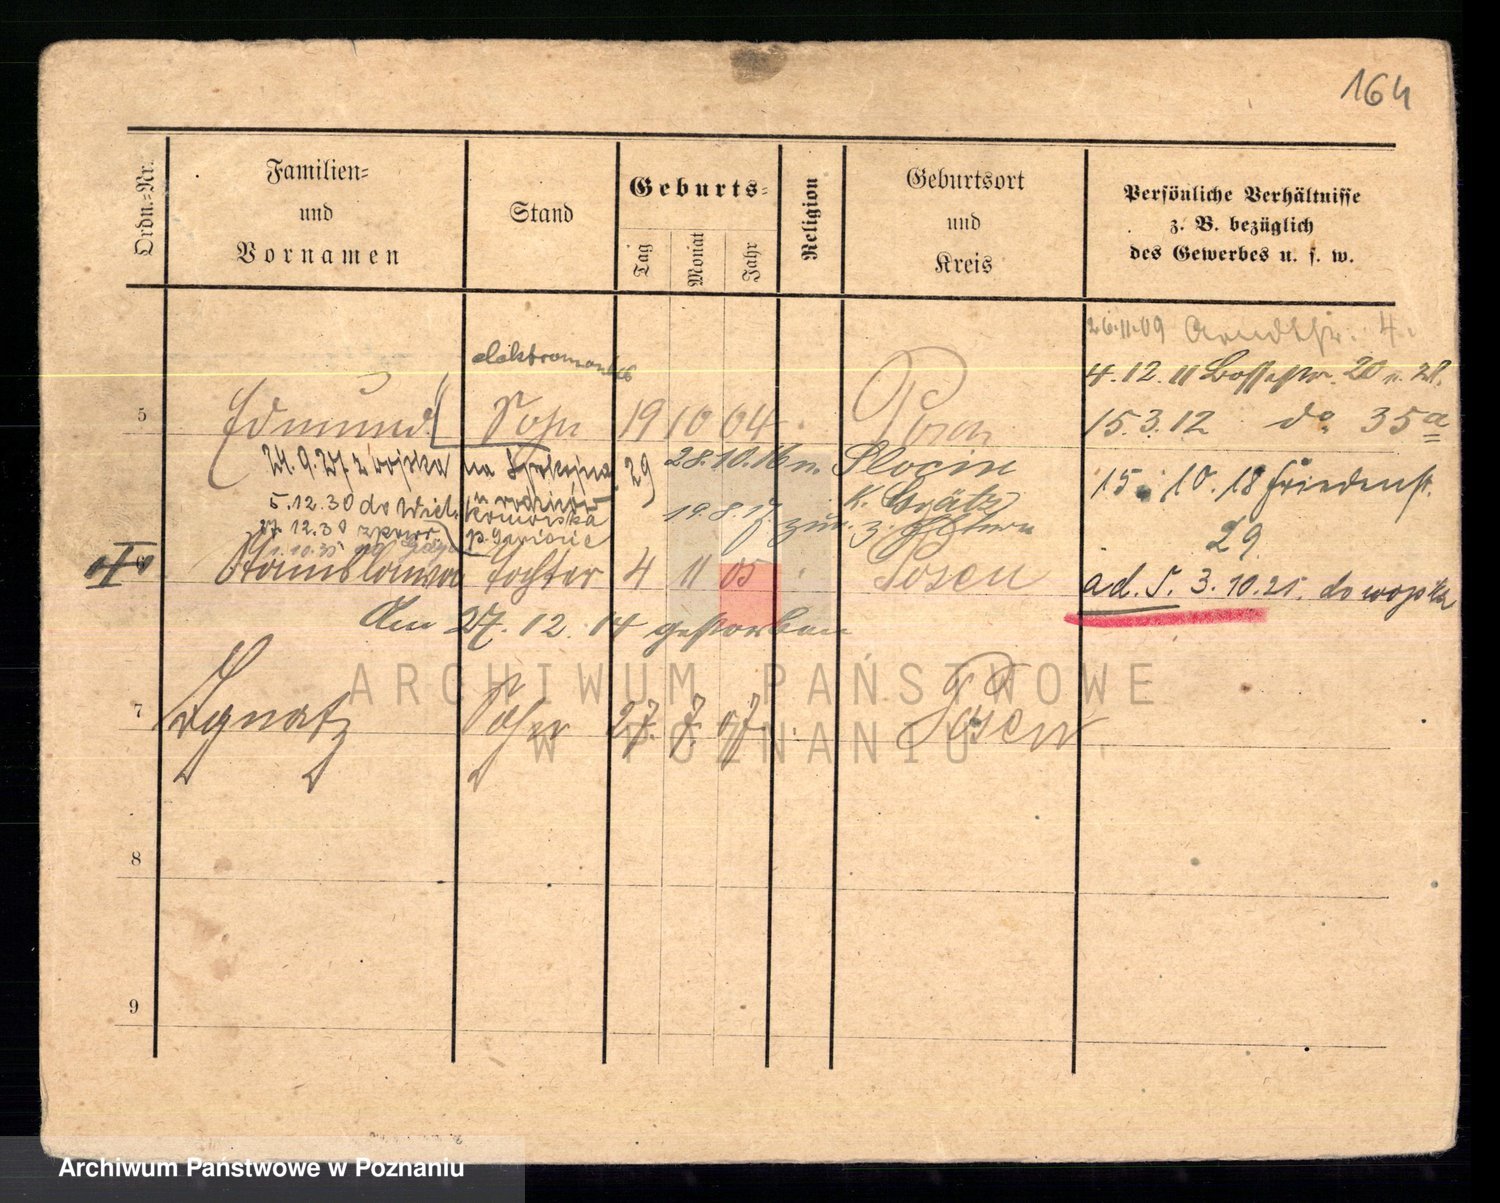 164
Ordn.-Nr.
Familien-
und
Vornamen
Stand
Geburts-
Tag
Monat
Jahr
Religion
Geburtsort
und
Kreis
Persönliche Verhältnisse
z. B. bezüglich
des Gewerbes u. s. w.
26.11.09 Arndtstr. 4.
4.12.11 20 u. 21.
15.3.12 do 35a
15.10.18 Friedenstr.
29
ad. 5. 3.10.25. do wojska
elektromonter
5 Edmund Sohn 19 10 04 Posen
21.9.27 z wojska na 29
28.10.16 n. Plocin
K. Grätz
5.12.30 do Wiel.
Komorska
19.8.17 zur. z. Eltern
27.12.30
6 Stanislawa Tochter 4 11 05 Posen
Am 27.12.14 gestorben
7 Ignatz Sohn 27. 7. 17 Posen
8
9
ARCHIWUM PAŃSTWOWE
W POZNANIU
Archiwum Państwowe w Poznaniu